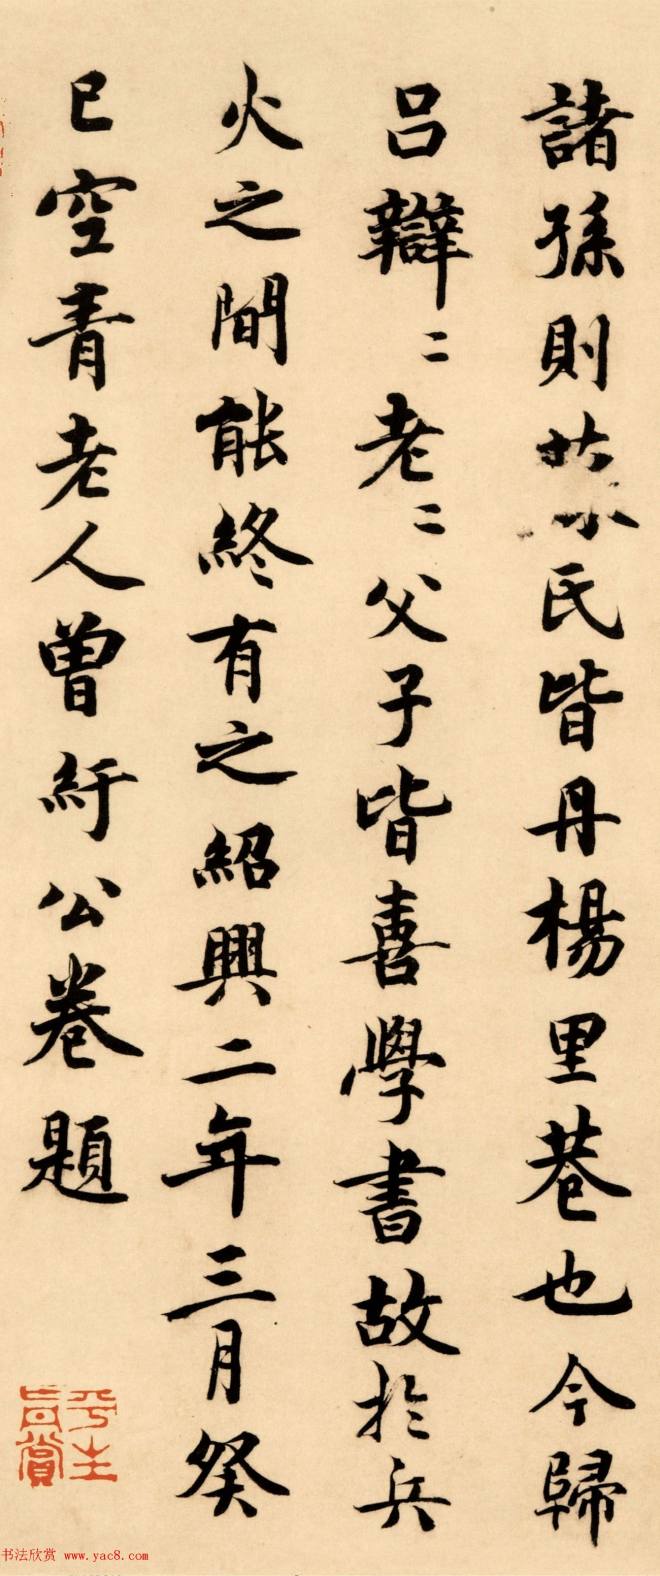 諸孫則蘇氏皆丹楊里巷也今歸
呂辯二老二父子皆喜學書故於兵
火之間能終有之紹興二年三月癸
巳空青老人曾紆公卷題
平生
真賞
书法欣赏 www.yac8.com